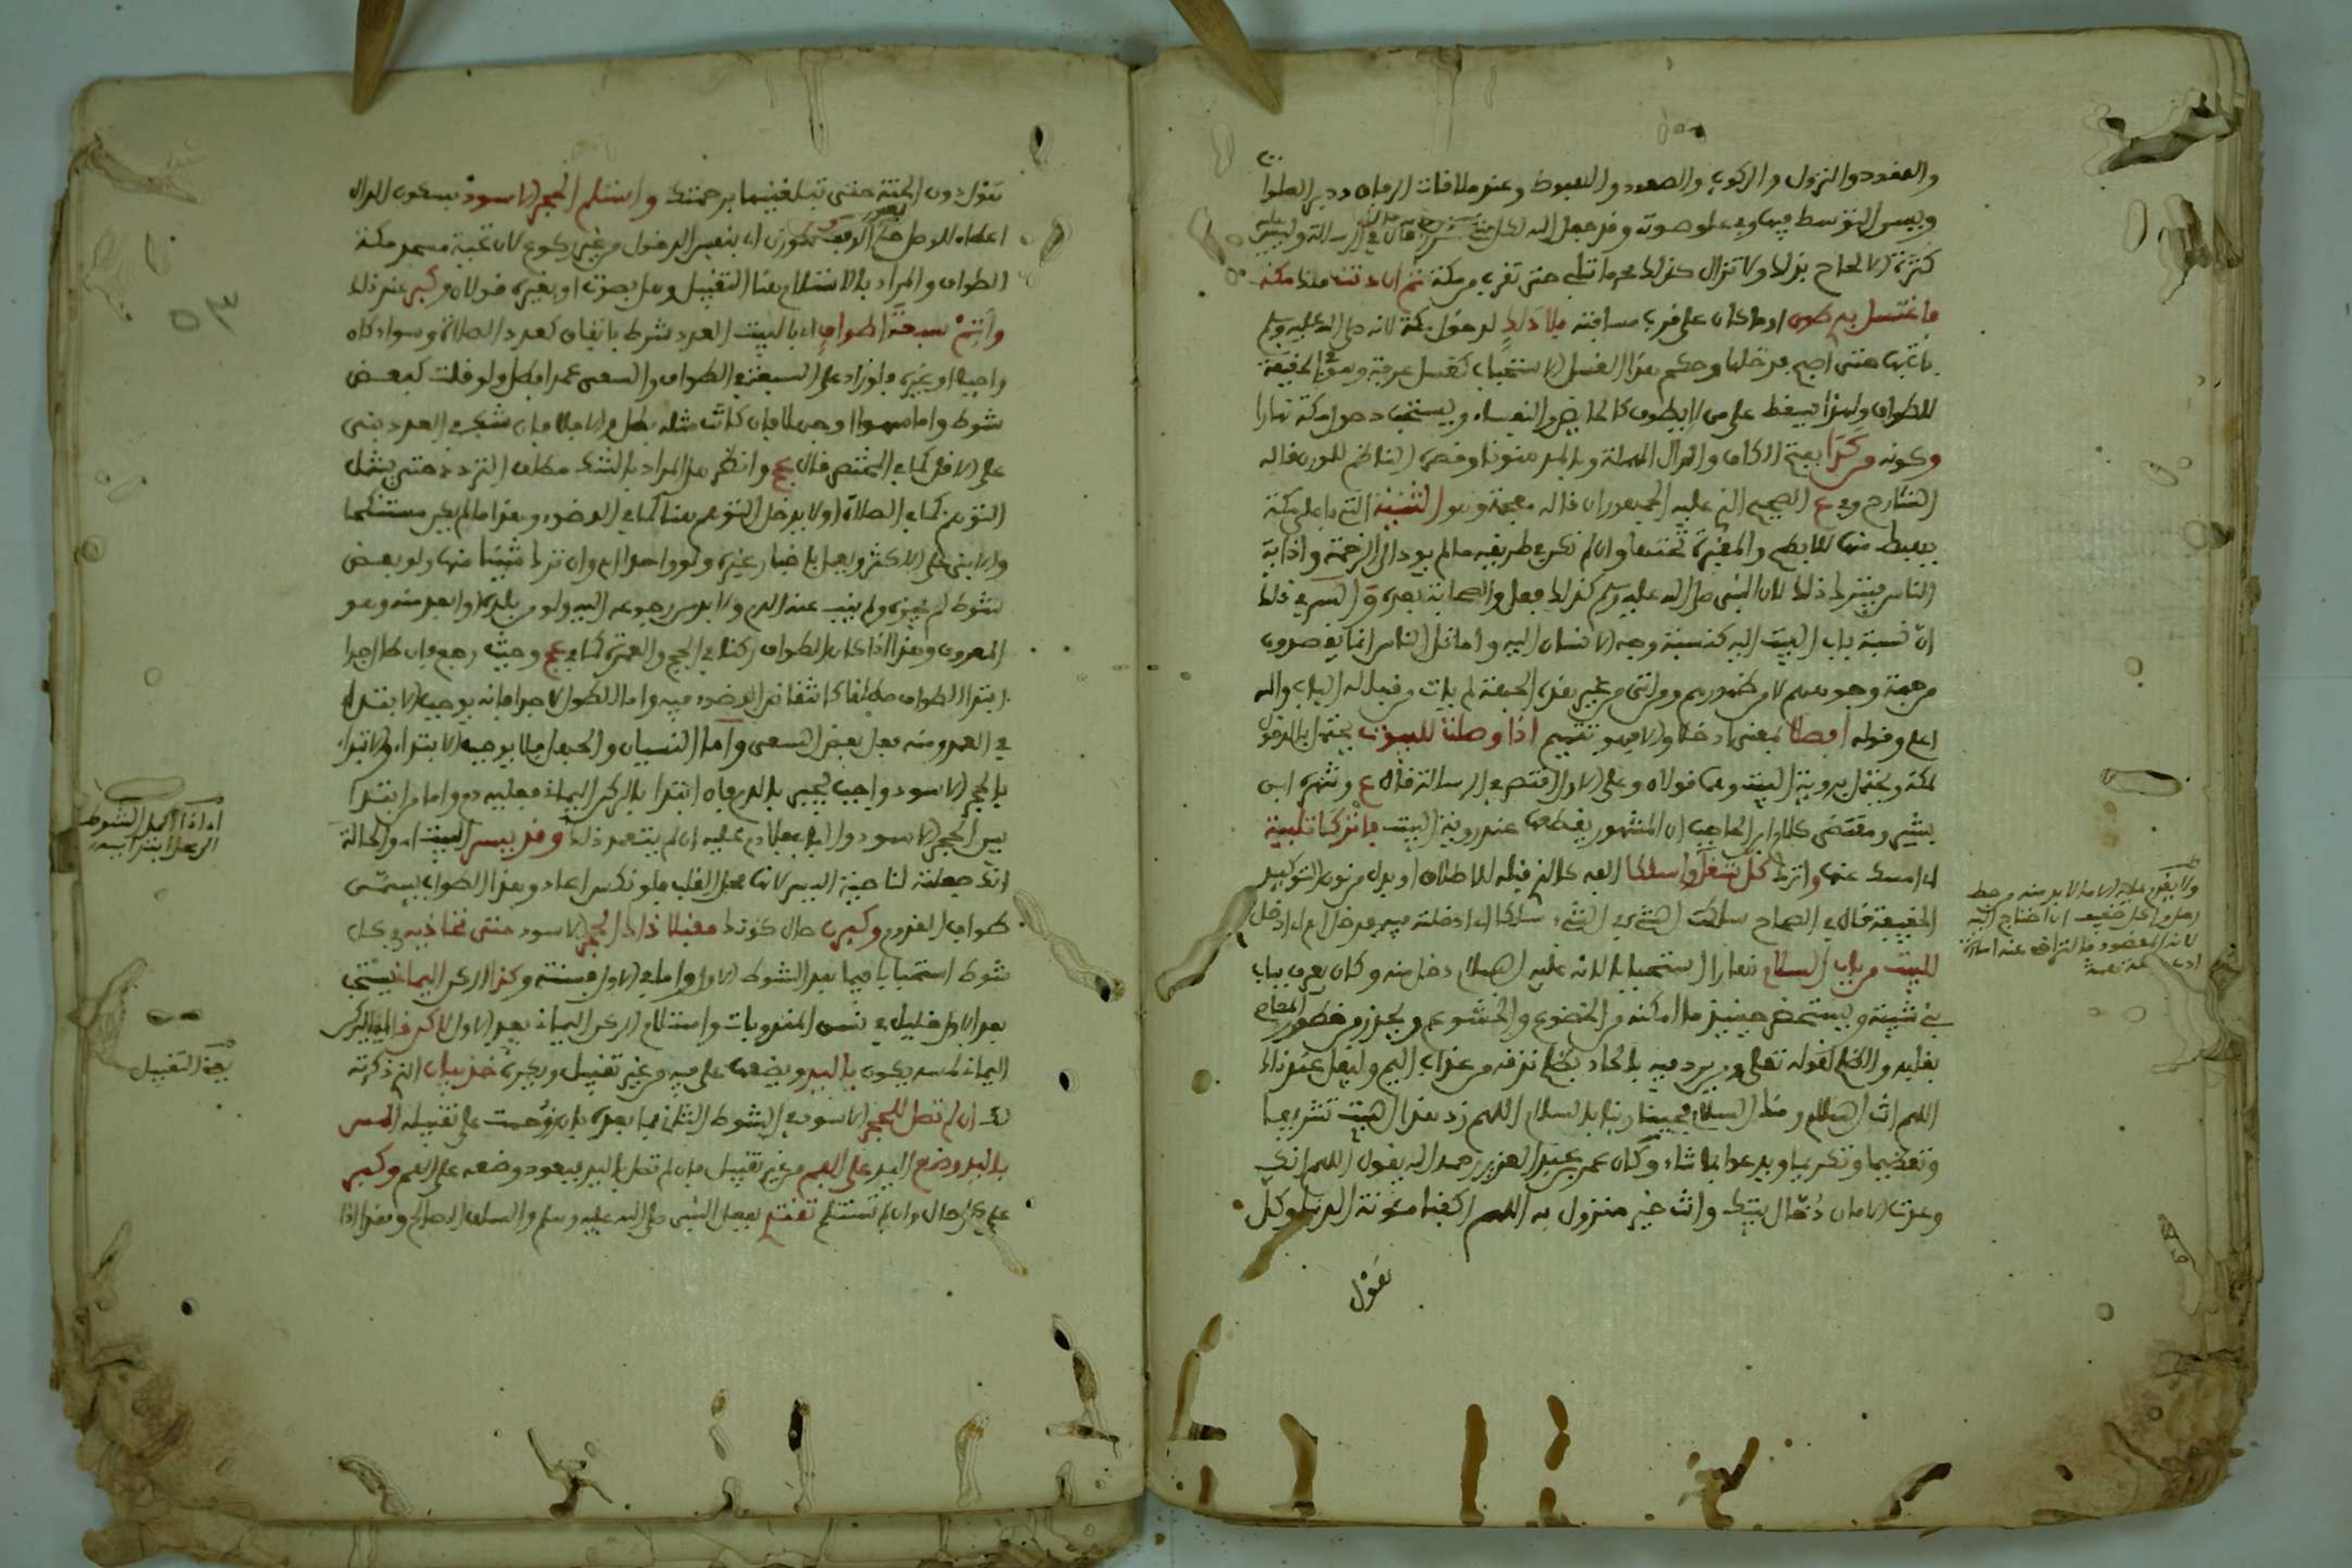 والقعود والنزول والركوب والصعود والهبوط وعند ملاقات الرفاق ودبر الصلوات
ويسن التوسط فيها وفي علو صوته وقد جعل الله لكل شيء قدرا قال في الرسالة وليس عليه
كثرة الالحاح بذلك ولا تزال كذلك محرما تلبي حتى تقرب من مكة ثم ان دنت منك مكة
فاغتسل بذي طوى او ما كان على قرب مسافته بلا دلك لدخول مكة لانه صلى الله عليه وسلم
بات بها حتى اصبح فدخلها وحكم هذا الغسل الاستحباب كغسل عرفة وهو في الحقيقة
للطواف ولهذا يسقط على من لا يطوف كالحايض والنفساء ويستحب دخول مكة نهارا
وكونه من كدا بفتح الكاف والدال المهملة وبالمد منونا وقصره الناظم للوزن قاله
الشارح وفي ع الصحيح الذي عليه الجمهور ان قاله معجمة وهو الثنية التي باعلى مكة
يهبط منها للابطح والمقبرة تحتها وان لم تكن في طريقه ما لم يود الى الزحمة واذاية
الناس فيترك ذلك لان النبي صلى الله عليه وسلم كذلك فعل والصحابة بعده والسر في ذلك
ان نسبة باب البيت اليه كنسبة وجه الانسان اليه واماثل الناس انما يقصدون
من جهة وجوههم لا من ظهورهم ومن اتى من غير هذه الجهة لم يات من قبالة الباب والله
اعلم وقوله فصلا بمعنى ادخلا والامر هو تتميم اذا وصلت للبيوت يحتمل بالدخول
لمكة ويحتمل برؤية البيت وهما قولان وعلى الاول اقتصر في الرسالة قال ع وشهره ابن
بشير ومقتضى كلام ابن الحاجب ان المشهور يقطعها عند رؤية البيت فاتركا تلبية
اي امسك عنها واترك كل شغل واسلكا الفه كالذي قبله للاطلاق او بدل من نون التوكيد
الخفيفة قال في الصحاح سلكت الشيء في الشيء سلكا اي ادخلته فيه فدخل اه اي ادخل
للبيت من باب السلام نهارا استحبابا لانه عليه السلام دخل منه وكان يعرف بباب
بني شيبة ويستحضر حينئذ ما امكنه من الخضوع والخشوع ويحذر من خطور المعاصي
بقلبه والظلم لقوله تعالى ومن يرد فيه بالحاد بظلم نذقه من عذاب اليم وليقل عند ذلك
اللهم انت السلام ومنك السلام فحينا ربنا بالسلام اللهم زد هذا البيت تشريفا
وتعظيما وتكريما ويدعوا بما شاء وكان عمر بن عبد العزيز رحمه الله يقول اللهم انك
وعدت الامان دخال بيتك وانت خير منزول به اللهم اكفنا مئونة الدنيا وكل
هول
ولا يقدم عليه الا ما لا بد منه من حط
رحل واكل خفيف ان احتاج اليه
لانه المقصود فالتراخي عنه اساءة
هول دون الجنة حتى تبلغنيها برحمتك واستلم الحجر الاسود بسكون الدال
الطواف والمراد بالاستلام هنا التقبيل وهل بصوت او بغيره قولان وكبر عند ذلك
واتم سبعة اطواف اي بالبيت العدد شرط باتفاق كعدد الصلاة وسواء كان
واجبا او غيره فلو زاد على السبعة في الطواف والسعي عمدا بطل ولو قلت كبعض
شوط واما سهوا او جهلا فان كانت مثله بطل والا فلا فان شك في العدد بنى
على الاقل كما في المختصر قال عج وانظر هل المراد بالشك مطلق التردد حتى يشمل
التوهم كما في الصلاة او لا يدخل التوهم هنا كما في الوضوء وهذا ما لم يكن مستنكحا
والا بنى على الاكثر ويعمل باخبار غيره ولو واحدا اه وان ترك شيئا منها ولو بعض
شوط لم يجزه ولم ينب عنه الدم ولا بد من رجوعه اليه ولو من بلده او ابعد منه وهو
المعروف وهذا اذا كان الطواف ركنا في الحج والعمرة كما في عج وحيث رجع فان طال جدا
ابتدا الطواف مطلقا كانتقاض الوضوء فيه واما الطول لا جدا فانه يوجب الابتداء
في العمد ومنه فعل بعض السعي واما النسيان والجهل فلا يوجبه الابتداء والابتداء
بالحجر الاسود واجب يجبر بالدم فان ابتدا بالركن اليماني فعليه دم واما من ابتدا
بين الحجر الاسود والباب فلا دم عليه ان لم يتعمد ذلك وقد يسر البيت اي والحالة
انك جعلته لناحية اليسر لانها محل القلب فلو نكس اعاد وهذا الطواف يسمى
طواف القدوم وكبرن حال كونك مقبلا ذاك الحجر الاسود متى تحاذيه في كل
شوط استحبابا فيما بعد الشوط الاول واما في الاول فسنة وكذا الركن اليماني يستحب
بعد الاول فقليل في نفس المندوبات واستلام الركن اليماني بعد الاول لاكن ذا اي الركن
اليماني لمسه يكون باليد ويضعها على فيه من غير تقبيل ويكبر خذ بيان الذي ذكرته
لك ان لم تصل للحجر الاسود في الشوط الثاني فما بعده بان زوحمت على تقبيله المس
باليد وضع اليد على الفم من غير تقبيل فان لم تصل باليد فبعود وضعه على الفم وكبر
على كل حال وان لم تستلم تقتد بفعل النبي صلى الله عليه وسلم والسلف الصالح وهذا اذا
اي اذا اكمل الشوط
بجهة التقبيل
٥٣